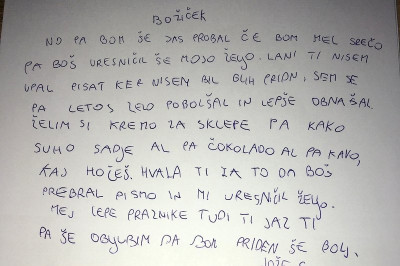 BOŽIČEK
NO PA BOM ŠE JAS PROBAL ČE BOM MEL SREČO
PA BOŠ URESNIČIL ŠE MOJO ŽELJO. LANI TI NISEM
UPAL PISAT KER NISEM BIL GLIH PRIDN, SEM SE
PA LETOS ZELO POBOLŠAL IN LEPŠE OBNAŠAL.
ŽELIM SI KREMO ZA SKLEPE PA KAKO
SUHO SADJE AL PA ČOKOLADO AL PA KAVO,
KAJ HOČEŠ. HVALA TI ZA TO DA BOŠ
PREBRAL PISMO IN MI URESNIČIL ŽELJO.
MEJ LEPE PRAZNIKE TUDI TI JAZ TI
PA ŠE OBLJUBIM DA BOM PRIDEN ŠE BOLJ.